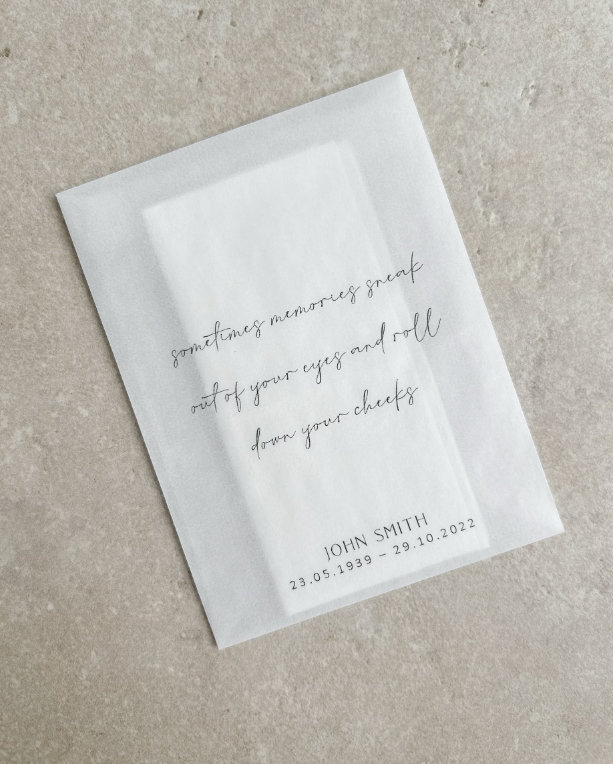 sometimes memories sneak
out of your eyes and roll
down your cheeks
JOHN SMITH
23.05.1939 – 29.10.2022